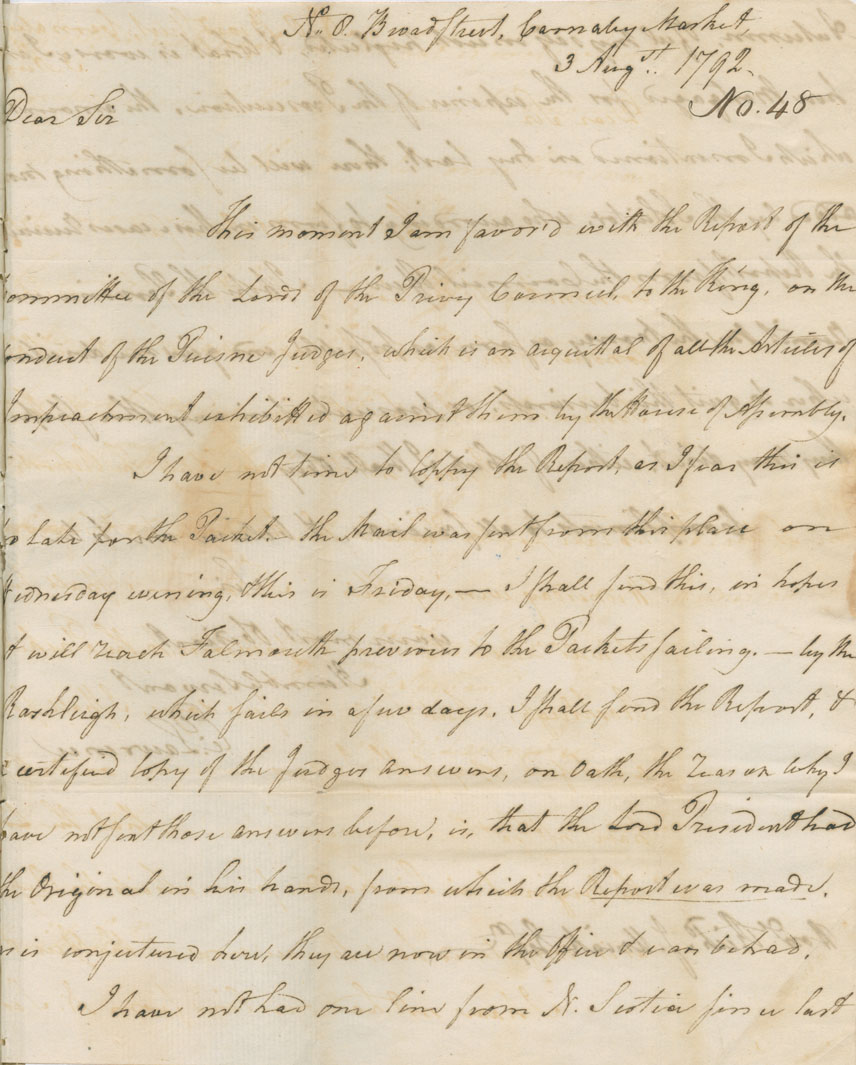 No. 8. Broad Street, Carnaby Market,
3 Augt. 1792.
No. 48
Dear Sir
This moment I am favor'd with the Report of the
ommittee of the Lords of the Privy Council, to the King, on the
onduct of the Puisne Judges, which is an acquittal of all the Articles of
Impeachment exhibitted against them by the House of Assembly.
I have not time to Coppy the Report, as I fear this is
o late for the Packet. the Mail was sent from this place on
ednesday evening, this is Friday, — I shall send this, in hopes
t will reach Falmouth previous to the Packets sailing. — by the
Rashleigh, which sails in a few days, I shall send the Report, &
certified Copy of the Judges answers, on Oath, the reason why I
have not sent those answers before, is, that the Lord President had
the Original in his hands, from which the Report was made,
as is conjectured here, they are now in the Office & can be had.
I have not had one line from N. Scotia since last